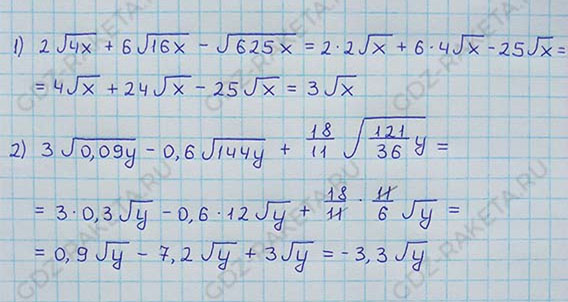 1) 2√4x + 6√16x − √625x = 2·2√x + 6·4√x − 25√x =
= 4√x + 24√x − 25√x = 3√x
2) 3√0,09y − 0,6√144y + 18/11 √(121/36 y) =
= 3·0,3√y − 0,6·12√y + 18/11 · 11/6 √y =
= 0,9√y − 7,2√y + 3√y = −3,3√y
GDZ-RAKETA.RU